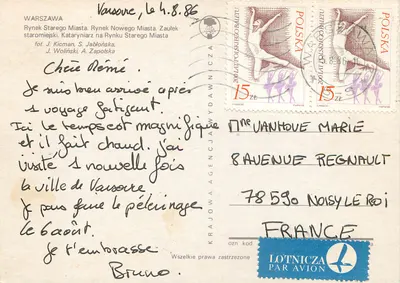 WARSZAWA
Rynek Starego Miasta. Rynek Nowego Miasta. Zaułek
staromiejski. Kataryniarz na Rynku Starego Miasta
fot. J. Kicman, S. Jabłońska,
J. Woliński, A. Zapolska
Varsovie, le 4.8.86
Chère Mémé.
Je suis bien arrivé après
1 voyage fatigant.
Ici le temps est magnifique
et il fait chaud. J'ai
visité 1 nouvelle fois
la ville de Varsovie
Je pars faire le pèlerinage
le 6 août.
Je t'embrasse
Bruno.
KRAJOWA AGENCJA WYDAWNICZA
POLSKA
15 ZŁ
POLSKA
15 ZŁ
Mme VANHOVE MARIE
8 AVENUE REGNAULT
78590 NOISY LE ROI
FRANCE
Wszelkie prawa zastrzeżone
LOTNICZA
PAR AVION